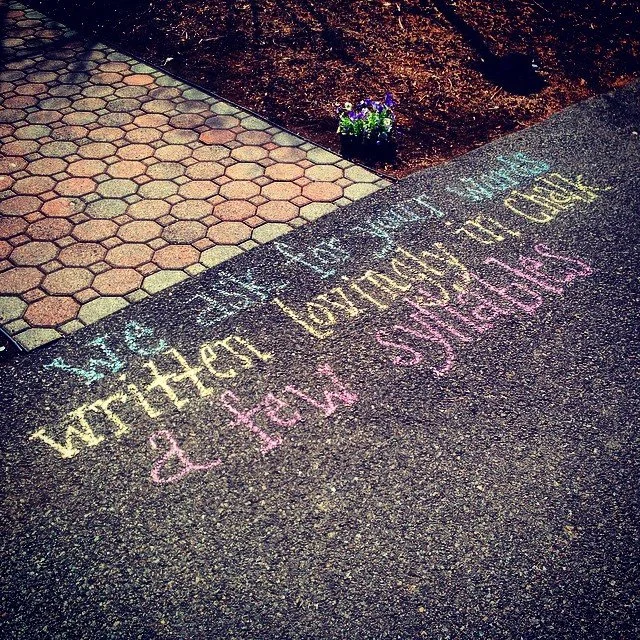 we ask for your words
written lovingly in chalk
a few syllables